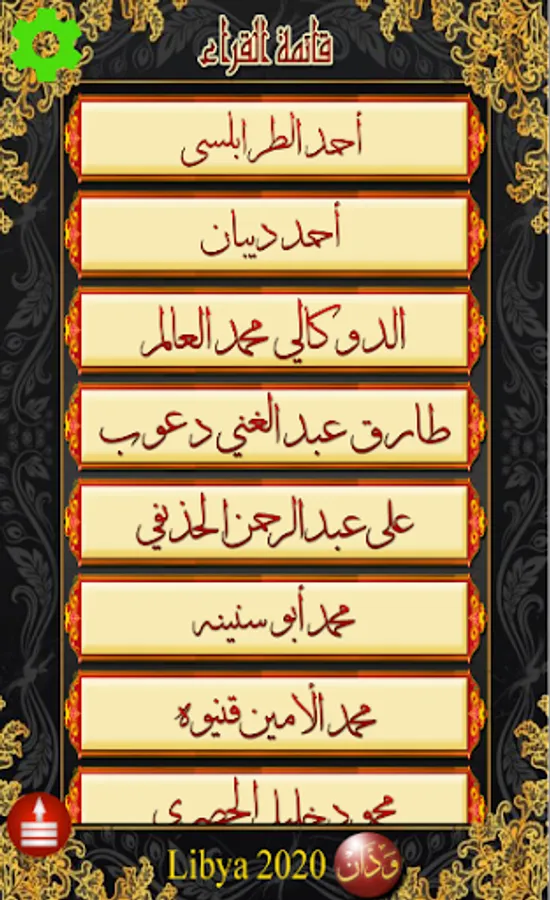 قائمة القراء
أحمد الطرابلسى
أحمد ديبان
الدوكالي محمد العالم
طارق عبد الغني دعوب
على عبدالرحمن الحذيفي
محمد أبو سنينه
محمد الأمين قنيوه
محمود خليل الحصرى
Libya 2020 ودان